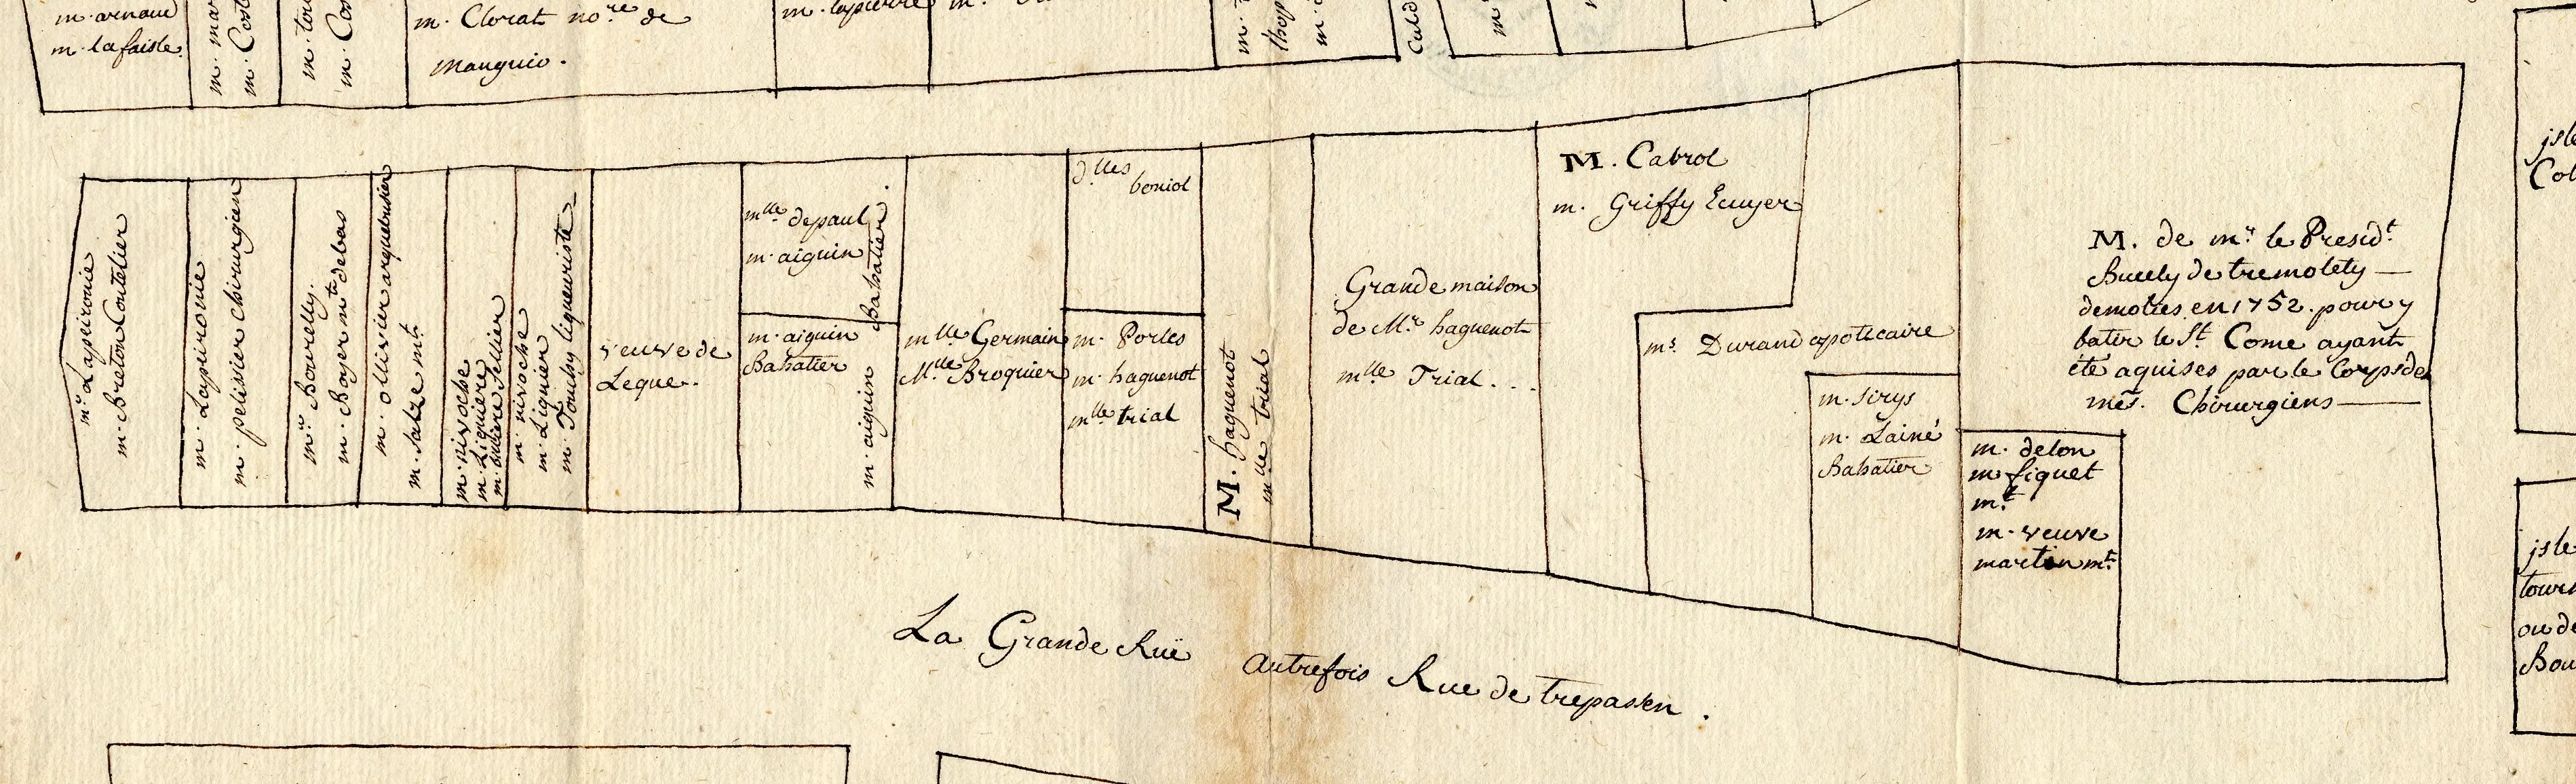 m. arnaud
m. lafaisle.
m. Clorat no.re de
mauguio.
m. lapierre
m.r Lapeironie
m. Breton Coutelier
m. Lapeironie
m. pelissier chirurgien
m.r Bourelly.
m. Boyer m.t de bas
m. ollivier arquebusier
m. salze m.t
m. niroche
m. Liguiere
m. niroche
m. Liguier
m. Toulsy liqueuriste
veuve de
Leque.
m.lle depaul
m. aiguin
m. aiguin Babatier
m. aiguin
Babatier
m.lle Germain
M.lle Broquier
d.lles
boniol
m. Portes
m. haguenot
m.lle trial
M. haguenot
m.lle trial
Grande maison
de M.r haguenot
m.lle Trial...
M. Cabrol
m. Griffy Ecuyer
m.s Durand apoticaire
m. sirys
m. Lainé
Babatier
m. delon
m. fiquet
m.t
m. veuve
martin m.t
M. de m.r le Presid.t
Bucely de tremolety
demolies en 1752. pour y
batir le S.t Come ayant
été aquises par le Corps des
mes. Chirurgiens
La Grande Ruë autrefois Rue de trepassen.
jsle
Col
jsle
ou de
Bou